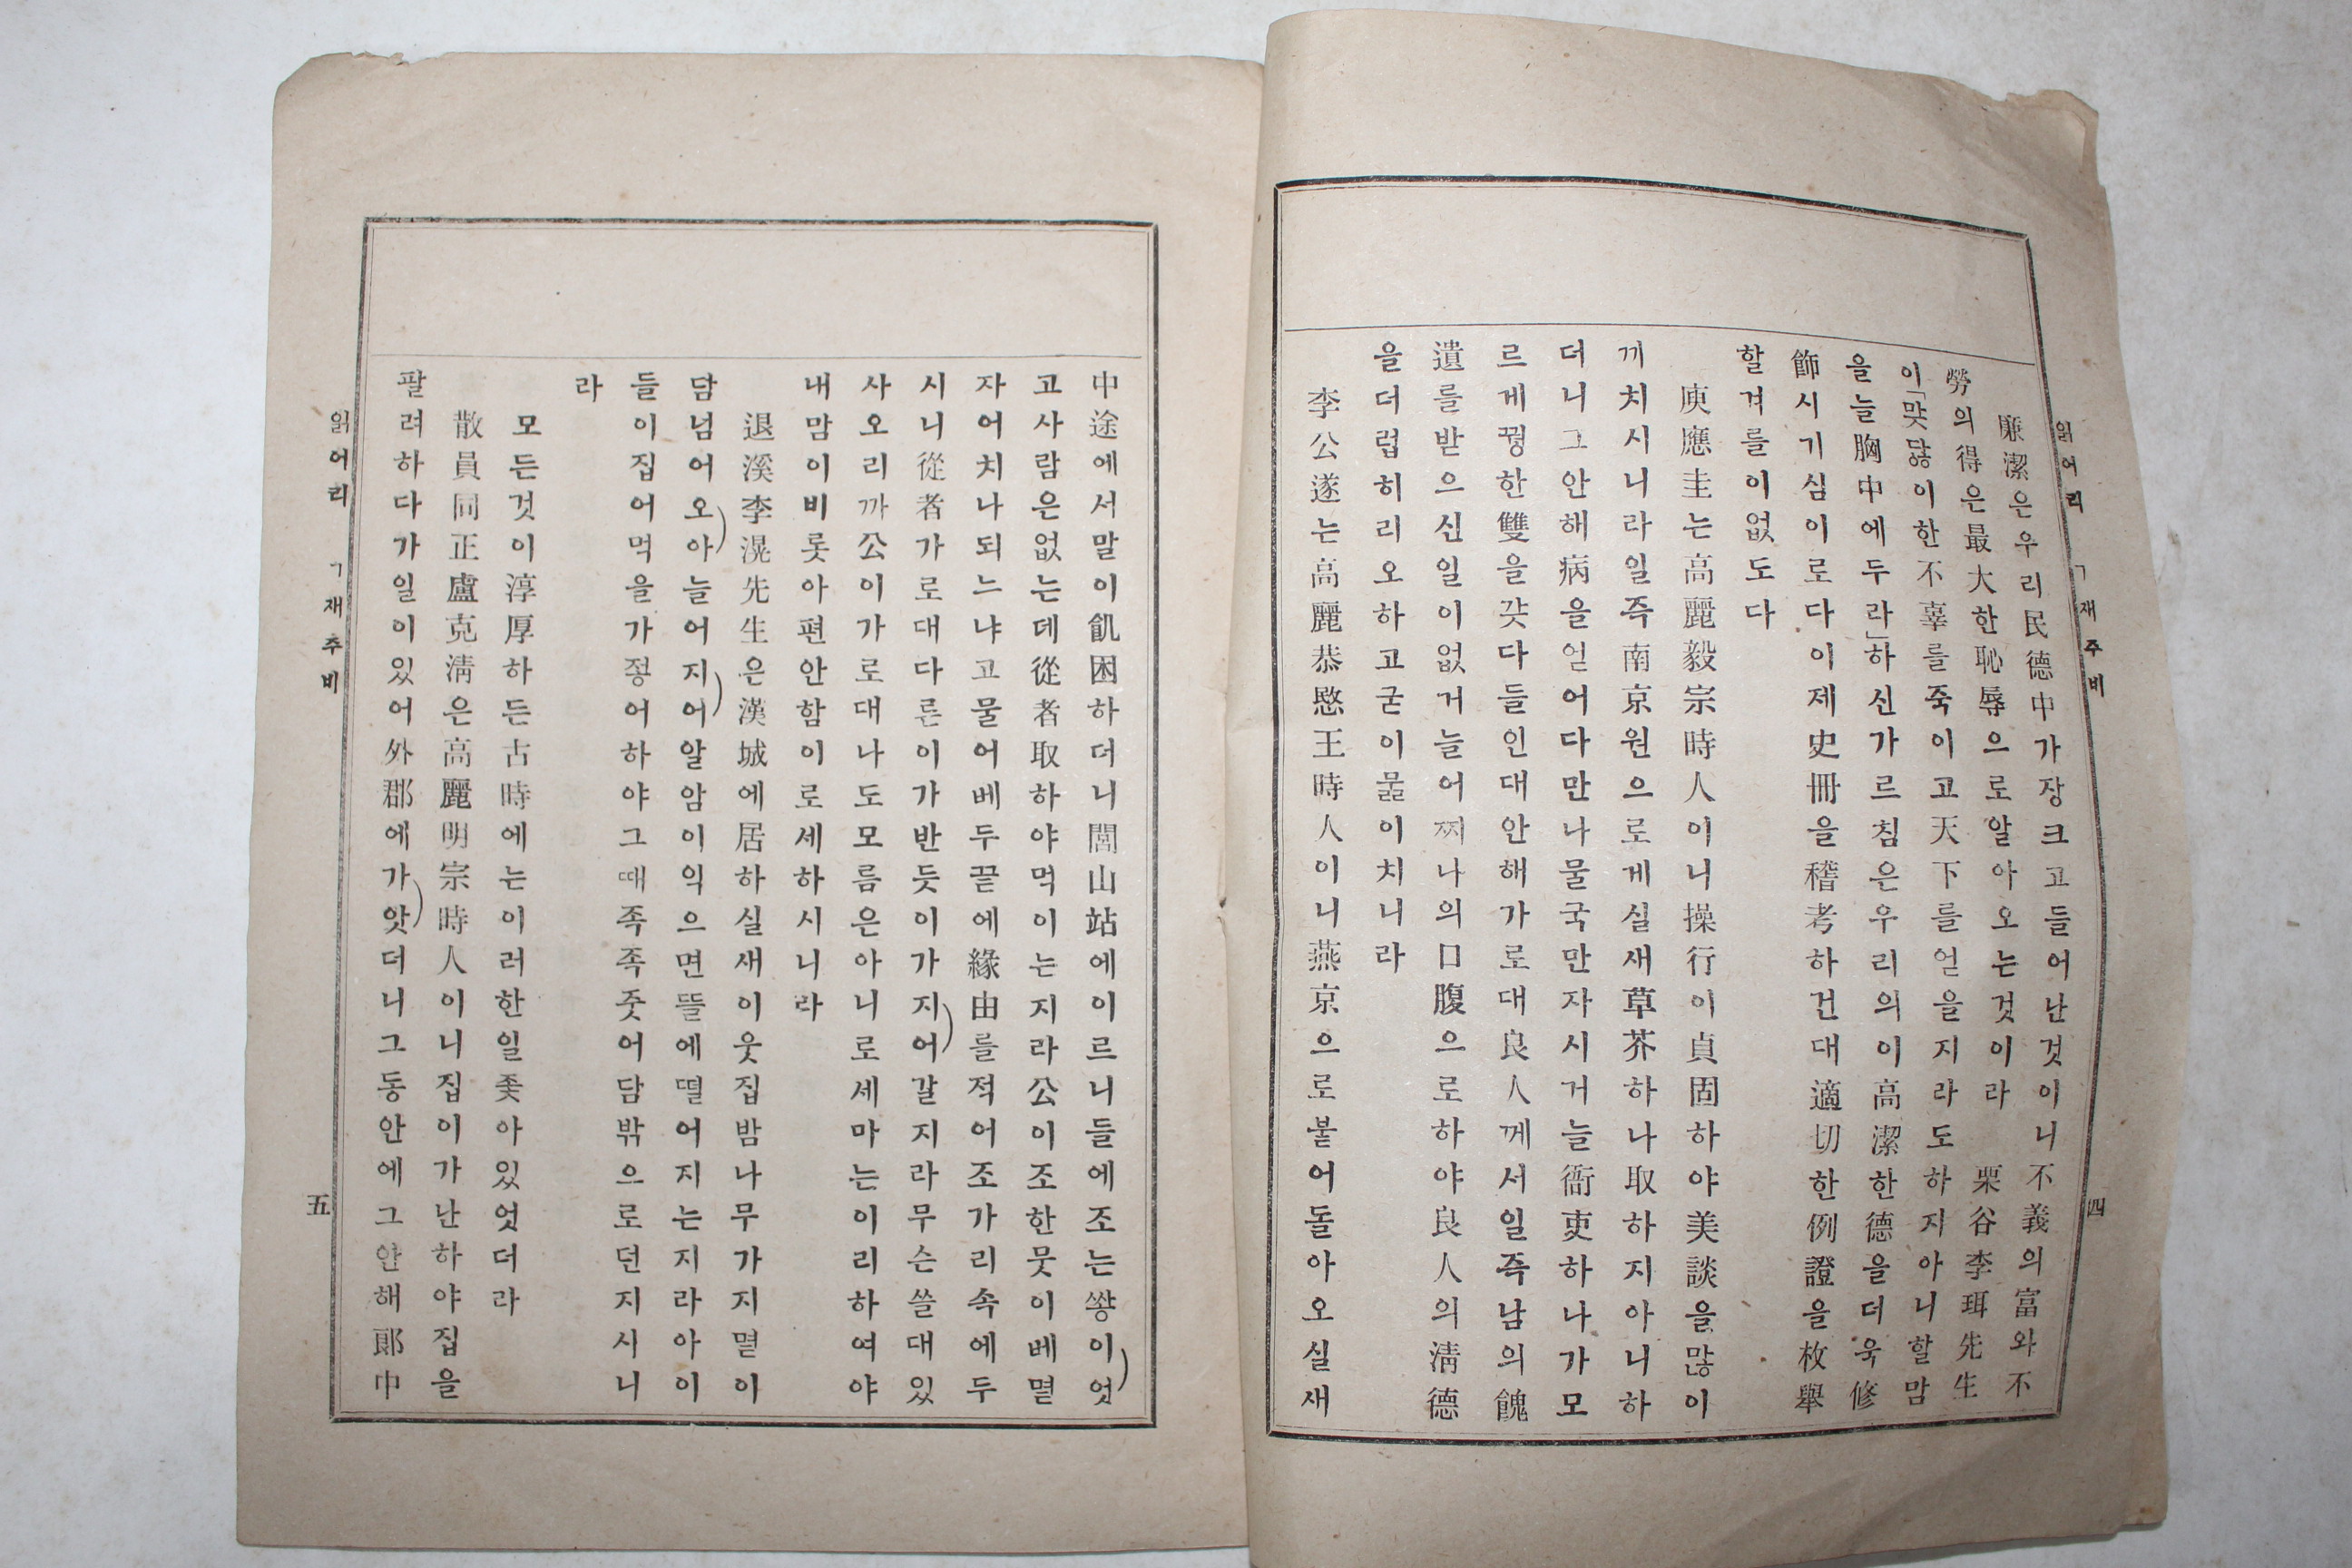 읽어리 ㄱ재주비 四
廉潔은우리民德中가장크고들어난것이니不義의富와不
勞의得은最大한恥辱으로알아오는것이라 栗谷李珥先生
이「맞닳이한不辜를죽이고天下를얻을지라도하지아니할맘
을늘胸中에두라」하신가르침은우리의이高潔한德을더욱修
飾시기심이로다이제史冊을稽考하건대適切한例證을枚擧
할겨를이없도다
庾應圭는高麗毅宗時人이니操行이貞固하야美談을많이
끼치시니라일즉南京원으로게실새草芥하나取하지아니하
더니그안해病을얻어다만나물국만자시거늘衙吏하나가모
르게꿩한雙을갖다들인대안해가로대良人께서일즉남의餽
遺를받으신일이없거늘어찌나의口腹으로하야良人의淸德
을더럽히리오하고굳이물이치니라
李公遂는高麗恭愍王時人이니燕京으로붙어돌아오실새
中途에서말이飢困하더니閭山站에이르니들에조는쌓이엇
고사람은없는데從者取하야먹이는지라公이조한뭇이베몇
자어치나되느냐고물어베두끝에緣由를적어조가리속에두
시니從者가로대다른이가반듯이가지어갈지라무슨쓸대있
사오리까公이가로대나도모름은아니로세마는이리하여야
내맘이비롯아편안함이로세하시니라
退溪李滉先生은漢城에居하실새이웃집밤나무가지몇이
담넘어오아늘어지어알암이익으면뜰에떨어지는지라아이
들이집어먹을가젛어하야그때족족줏어담밖으로던지시니
라
모든것이淳厚하든古時에는이러한일좇아있엇더라
散員同正盧克淸은高麗明宗時人이니집이가난하야집을
팔려하다가일이있어外郡에가앗더니그동안에그안해郞中
읽어리 ㄱ재주비 五